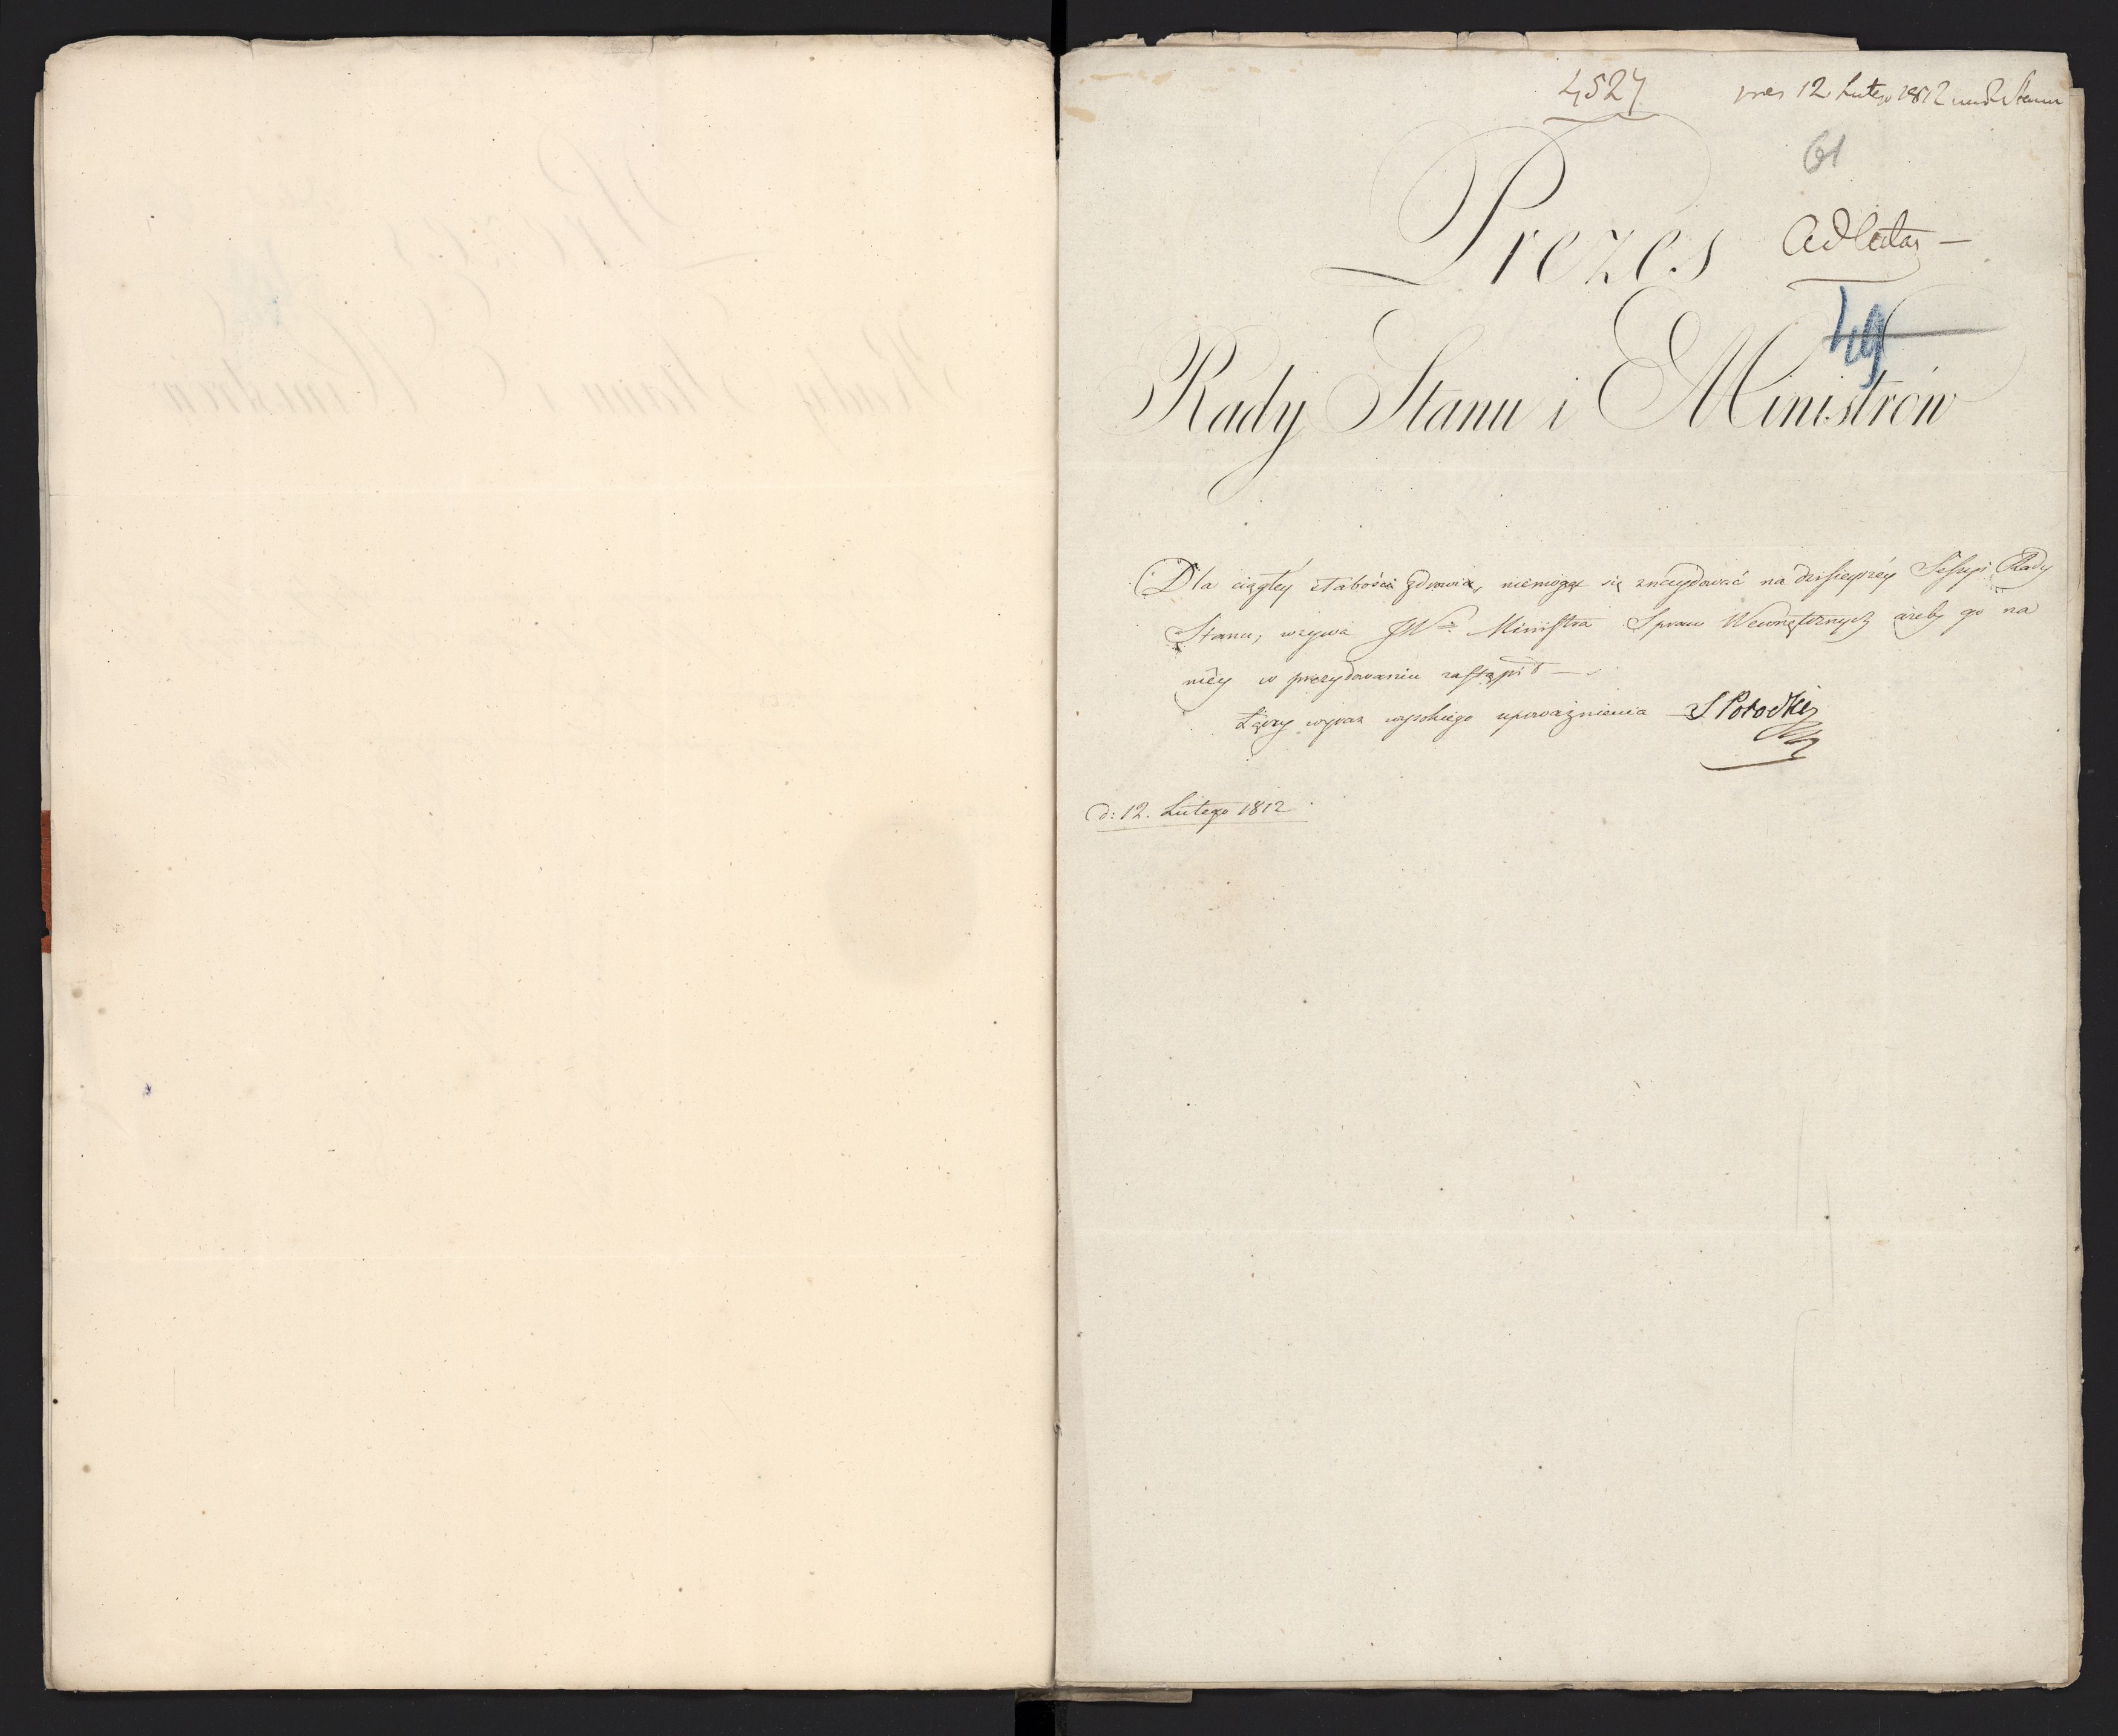 4527
pres 12 Lutego 1812 na R Stanu
61
Prezes
Ad Acta
49
Rady Stanu i Ministrów
Dla ciągłey słabości zdrowia, niemogąc się znaydować na dzisieyszéy Sessyi Rady
Stanu, wzywa JWo Ministra Spraw Wewnętrznych ażeby go na
niéy w prezydowaniu zastąpił —
Łączy wyraz wysokiego upoważnienia S Potocki
d: 12. Lutego 1812